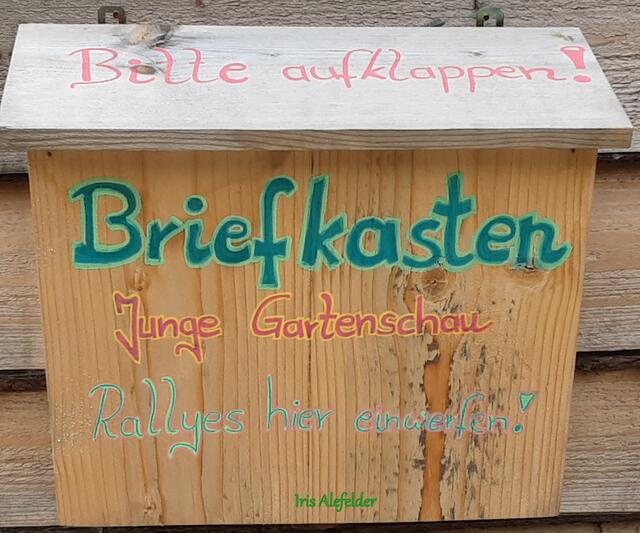 Bitte aufklappen!
Briefkasten
Junge Gartenschau
Rallyes hier einwerfen!
Iris Alefelder